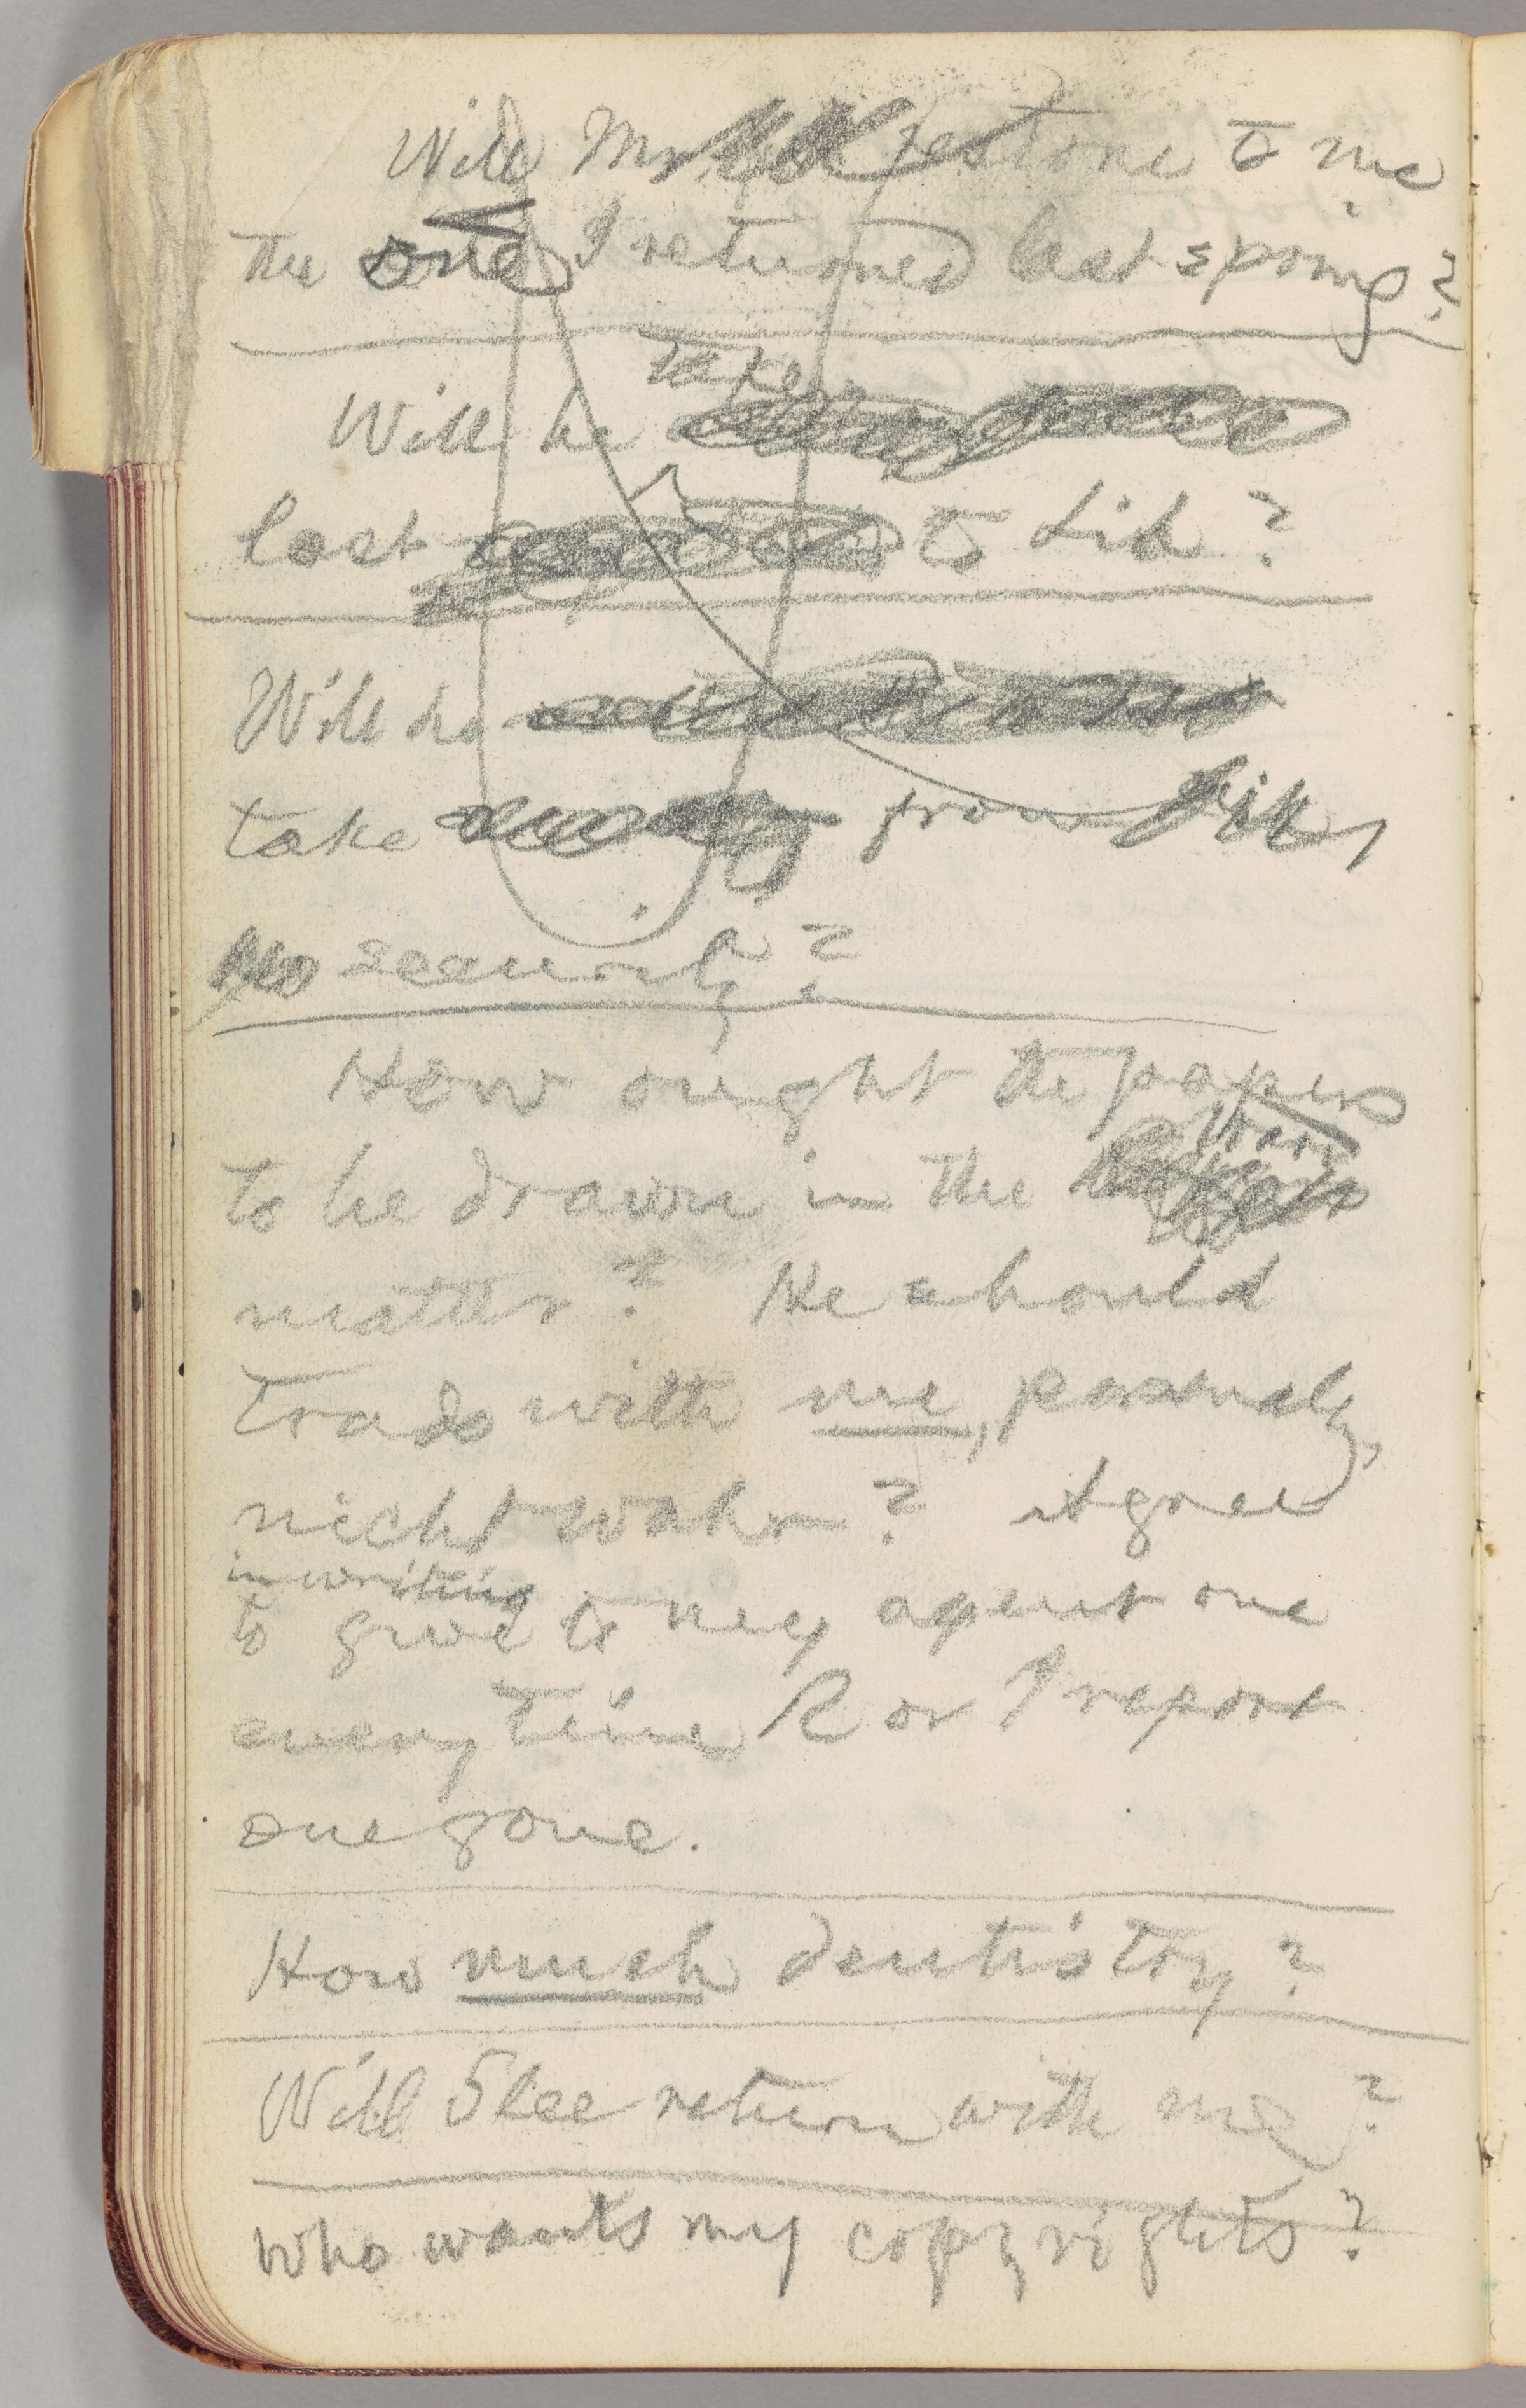 Will Mr restore to me
the one I returned last spring?
take
Will he
last to Lib?
Will he
take from Lib,
no security?
How ought the papers
Pars
to be drawn in the
matter? He should
trade with me, personally,
nicht wahr? Agree
in writing
to give to my agent one
every time R or I report
one gone.
How much dentistry?
Will Slee return with me?
Who wants my copyrights?